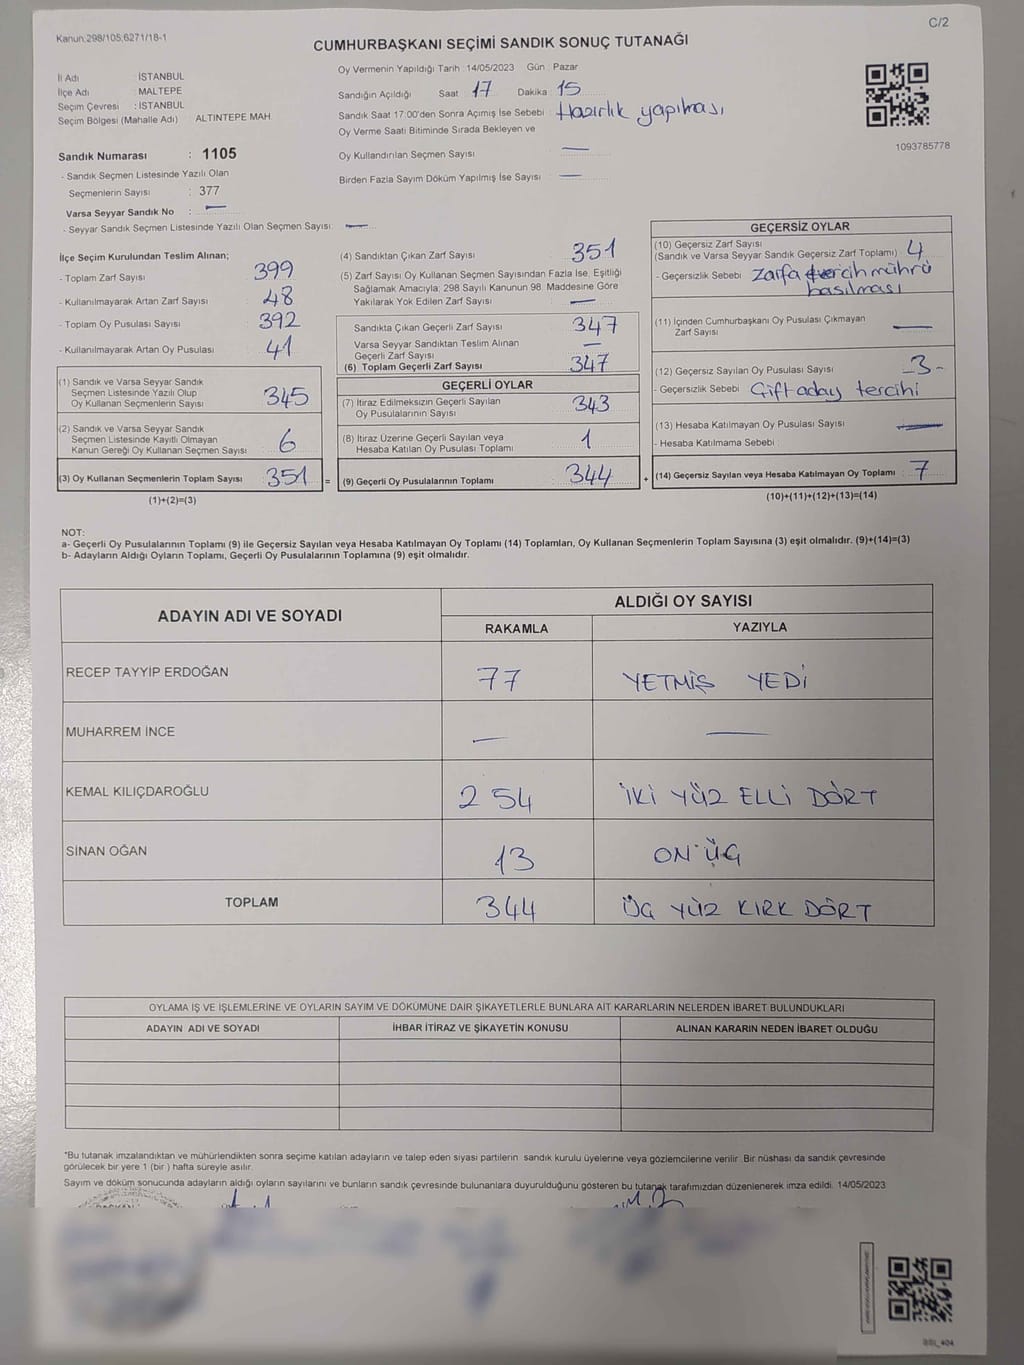 C/2
Kanun:298/105;6271/18-1
CUMHURBAŞKANI SEÇİMİ SANDIK SONUÇ TUTANAĞI
İl Adı : İSTANBUL
İlçe Adı : MALTEPE
Seçim Çevresi : İSTANBUL
Seçim Bölgesi (Mahalle Adı) ALTINTEPE MAH.
Oy Vermenin Yapıldığı Tarih :14/05/2023 Gün : Pazar
Sandığın Açıldığı Saat 17 Dakika 15
Sandık Saat 17:00'den Sonra Açımış İse Sebebi : Hazırlık yapılması
Oy Verme Saati Bitiminde Sırada Bekleyen ve
Oy Kullandırılan Seçmen Sayısı : —
Birden Fazla Sayım Döküm Yapılmış İse Sayısı : —
1093785778
Sandık Numarası : 1105
- Sandık Seçmen Listesinde Yazılı Olan
Seçmenlerin Sayısı : 377
Varsa Seyyar Sandık No : —
- Seyyar Sandık Seçmen Listesinde Yazılı Olan Seçmen Sayısı: —
İlçe Seçim Kurulundan Teslim Alınan;
- Toplam Zarf Sayısı 399
- Kullanılmayarak Artan Zarf Sayısı 48
- Toplam Oy Pusulası Sayısı 392
- Kullanılmayarak Artan Oy Pusulası 41
(1) Sandık ve Varsa Seyyar Sandık
Seçmen Listesinde Yazılı Olup
Oy Kullanan Seçmenlerin Sayısı 345
(2) Sandık ve Varsa Seyyar Sandık
Seçmen Listesinde Kayıtlı Olmayan
Kanun Gereği Oy Kullanan Seçmen Sayısı 6
(3) Oy Kullanan Seçmenlerin Toplam Sayısı 351
(1)+(2)=(3)
(4) Sandıktan Çıkan Zarf Sayısı 351
(5) Zarf Sayısı Oy Kullanan Seçmen Sayısından Fazla İse, Eşitliği
Sağlamak Amacıyla; 298 Sayılı Kanunun 98. Maddesine Göre
Yakılarak Yok Edilen Zarf Sayısı —
Sandıkta Çıkan Geçerli Zarf Sayısı 347
Varsa Seyyar Sandıktan Teslim Alınan
Geçerli Zarf Sayısı —
(6) Toplam Geçerli Zarf Sayısı 347
GEÇERLİ OYLAR
(7) İtiraz Edilmeksizin Geçerli Sayılan
Oy Pusulalarının Sayısı 343
(8) İtiraz Üzerine Geçerli Sayılan veya
Hesaba Katılan Oy Pusulası Toplamı 1
= (9) Geçerli Oy Pusulalarının Toplamı 344
GEÇERSİZ OYLAR
(10) Geçersiz Zarf Sayısı
(Sandık ve Varsa Seyyar Sandık Geçersiz Zarf Toplamı) 4
- Geçersizlik Sebebi Zarfa tercih mührü
basılması
(11) İçinden Cumhurbaşkanı Oy Pusulası Çıkmayan
Zarf Sayısı —
(12) Geçersiz Sayılan Oy Pusulası Sayısı -3-
- Geçersizlik Sebebi Çift aday tercihi
(13) Hesaba Katılmayan Oy Pusulası Sayısı —
- Hesaba Katılmama Sebebi :
+ (14) Geçersiz Sayılan veya Hesaba Katılmayan Oy Toplamı 7
(10)+(11)+(12)+(13)=(14)
NOT:
a- Geçerli Oy Pusulalarının Toplamı (9) ile Geçersiz Sayılan veya Hesaba Katılmayan Oy Toplamı (14) Toplamları, Oy Kullanan Seçmenlerin Toplam Sayısına (3) eşit olmalıdır. (9)+(14)=(3)
b- Adayların Aldığı Oyların Toplamı, Geçerli Oy Pusulalarının Toplamına (9) eşit olmalıdır.
ADAYIN ADI VE SOYADI ALDIĞI OY SAYISI
RAKAMLA YAZIYLA
RECEP TAYYİP ERDOĞAN 77 YETMİŞ YEDİ
MUHARREM İNCE — —
KEMAL KILIÇDAROĞLU 254 İKİ YÜZ ELLİ DÖRT
SİNAN OĞAN 13 ON ÜÇ
TOPLAM 344 ÜÇ YÜZ KIRK DÖRT
OYLAMA İŞ VE İŞLEMLERİNE VE OYLARIN SAYIM VE DÖKÜMÜNE DAİR ŞİKAYETLERLE BUNLARA AİT KARARLARIN NELERDEN İBARET BULUNDUKLARI
ADAYIN ADI VE SOYADI İHBAR İTİRAZ VE ŞİKAYETİN KONUSU ALINAN KARARIN NEDEN İBARET OLDUĞU
*Bu tutanak imzalandıktan ve mühürlendikten sonra seçime katılan adayların ve talep eden siyasi partilerin sandık kurulu üyelerine veya gözlemcilerine verilir. Bir nüshası da sandık çevresinde
görülecek bir yere 1 (bir ) hafta süreyle asılır.
Sayım ve döküm sonucunda adayların aldığı oyların sayılarını ve bunların sandık çevresinde bulunanlara duyurulduğunu gösteren bu tutanak tarafımızdan düzenlenerek imza edildi. 14/05/2023